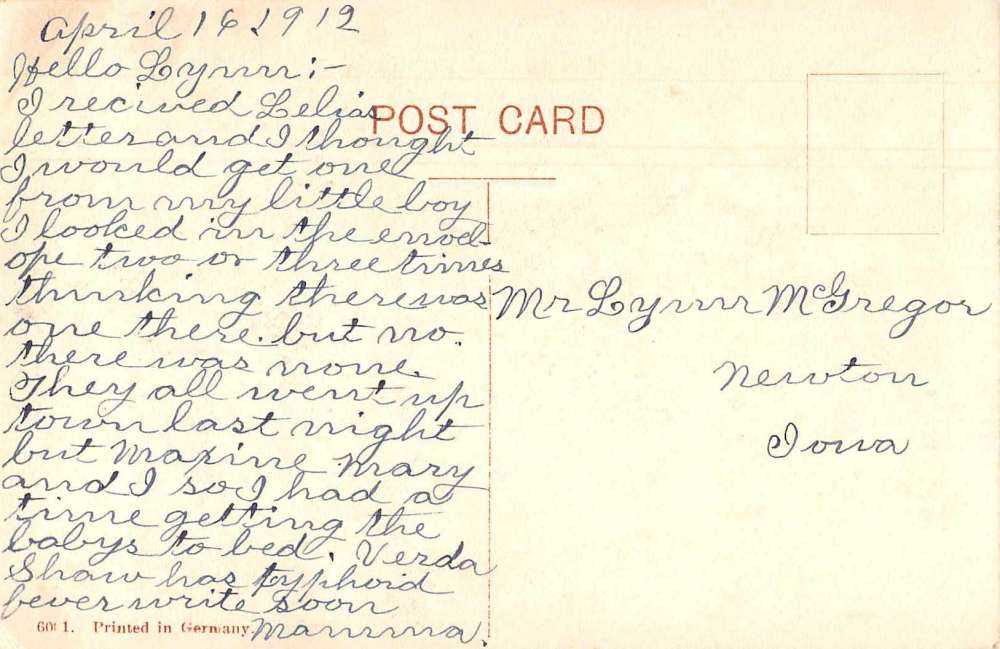 April 16 1912
Hello Lynn:-
I recived Lelias
letter and I thought
I would get one
from my little boy
I looked in the envel-
ope two or three times
thinking there was
one there. but no.
there was none.
They all went up
town last night
but Maxine Mary
and I so I had a
time getting the
babys to bed. Verda
Shaw has typhoid
fever write soon
Mamma.
POST CARD
Mr Lynn McGregor
Newton
Iowa
Printed in Germany.